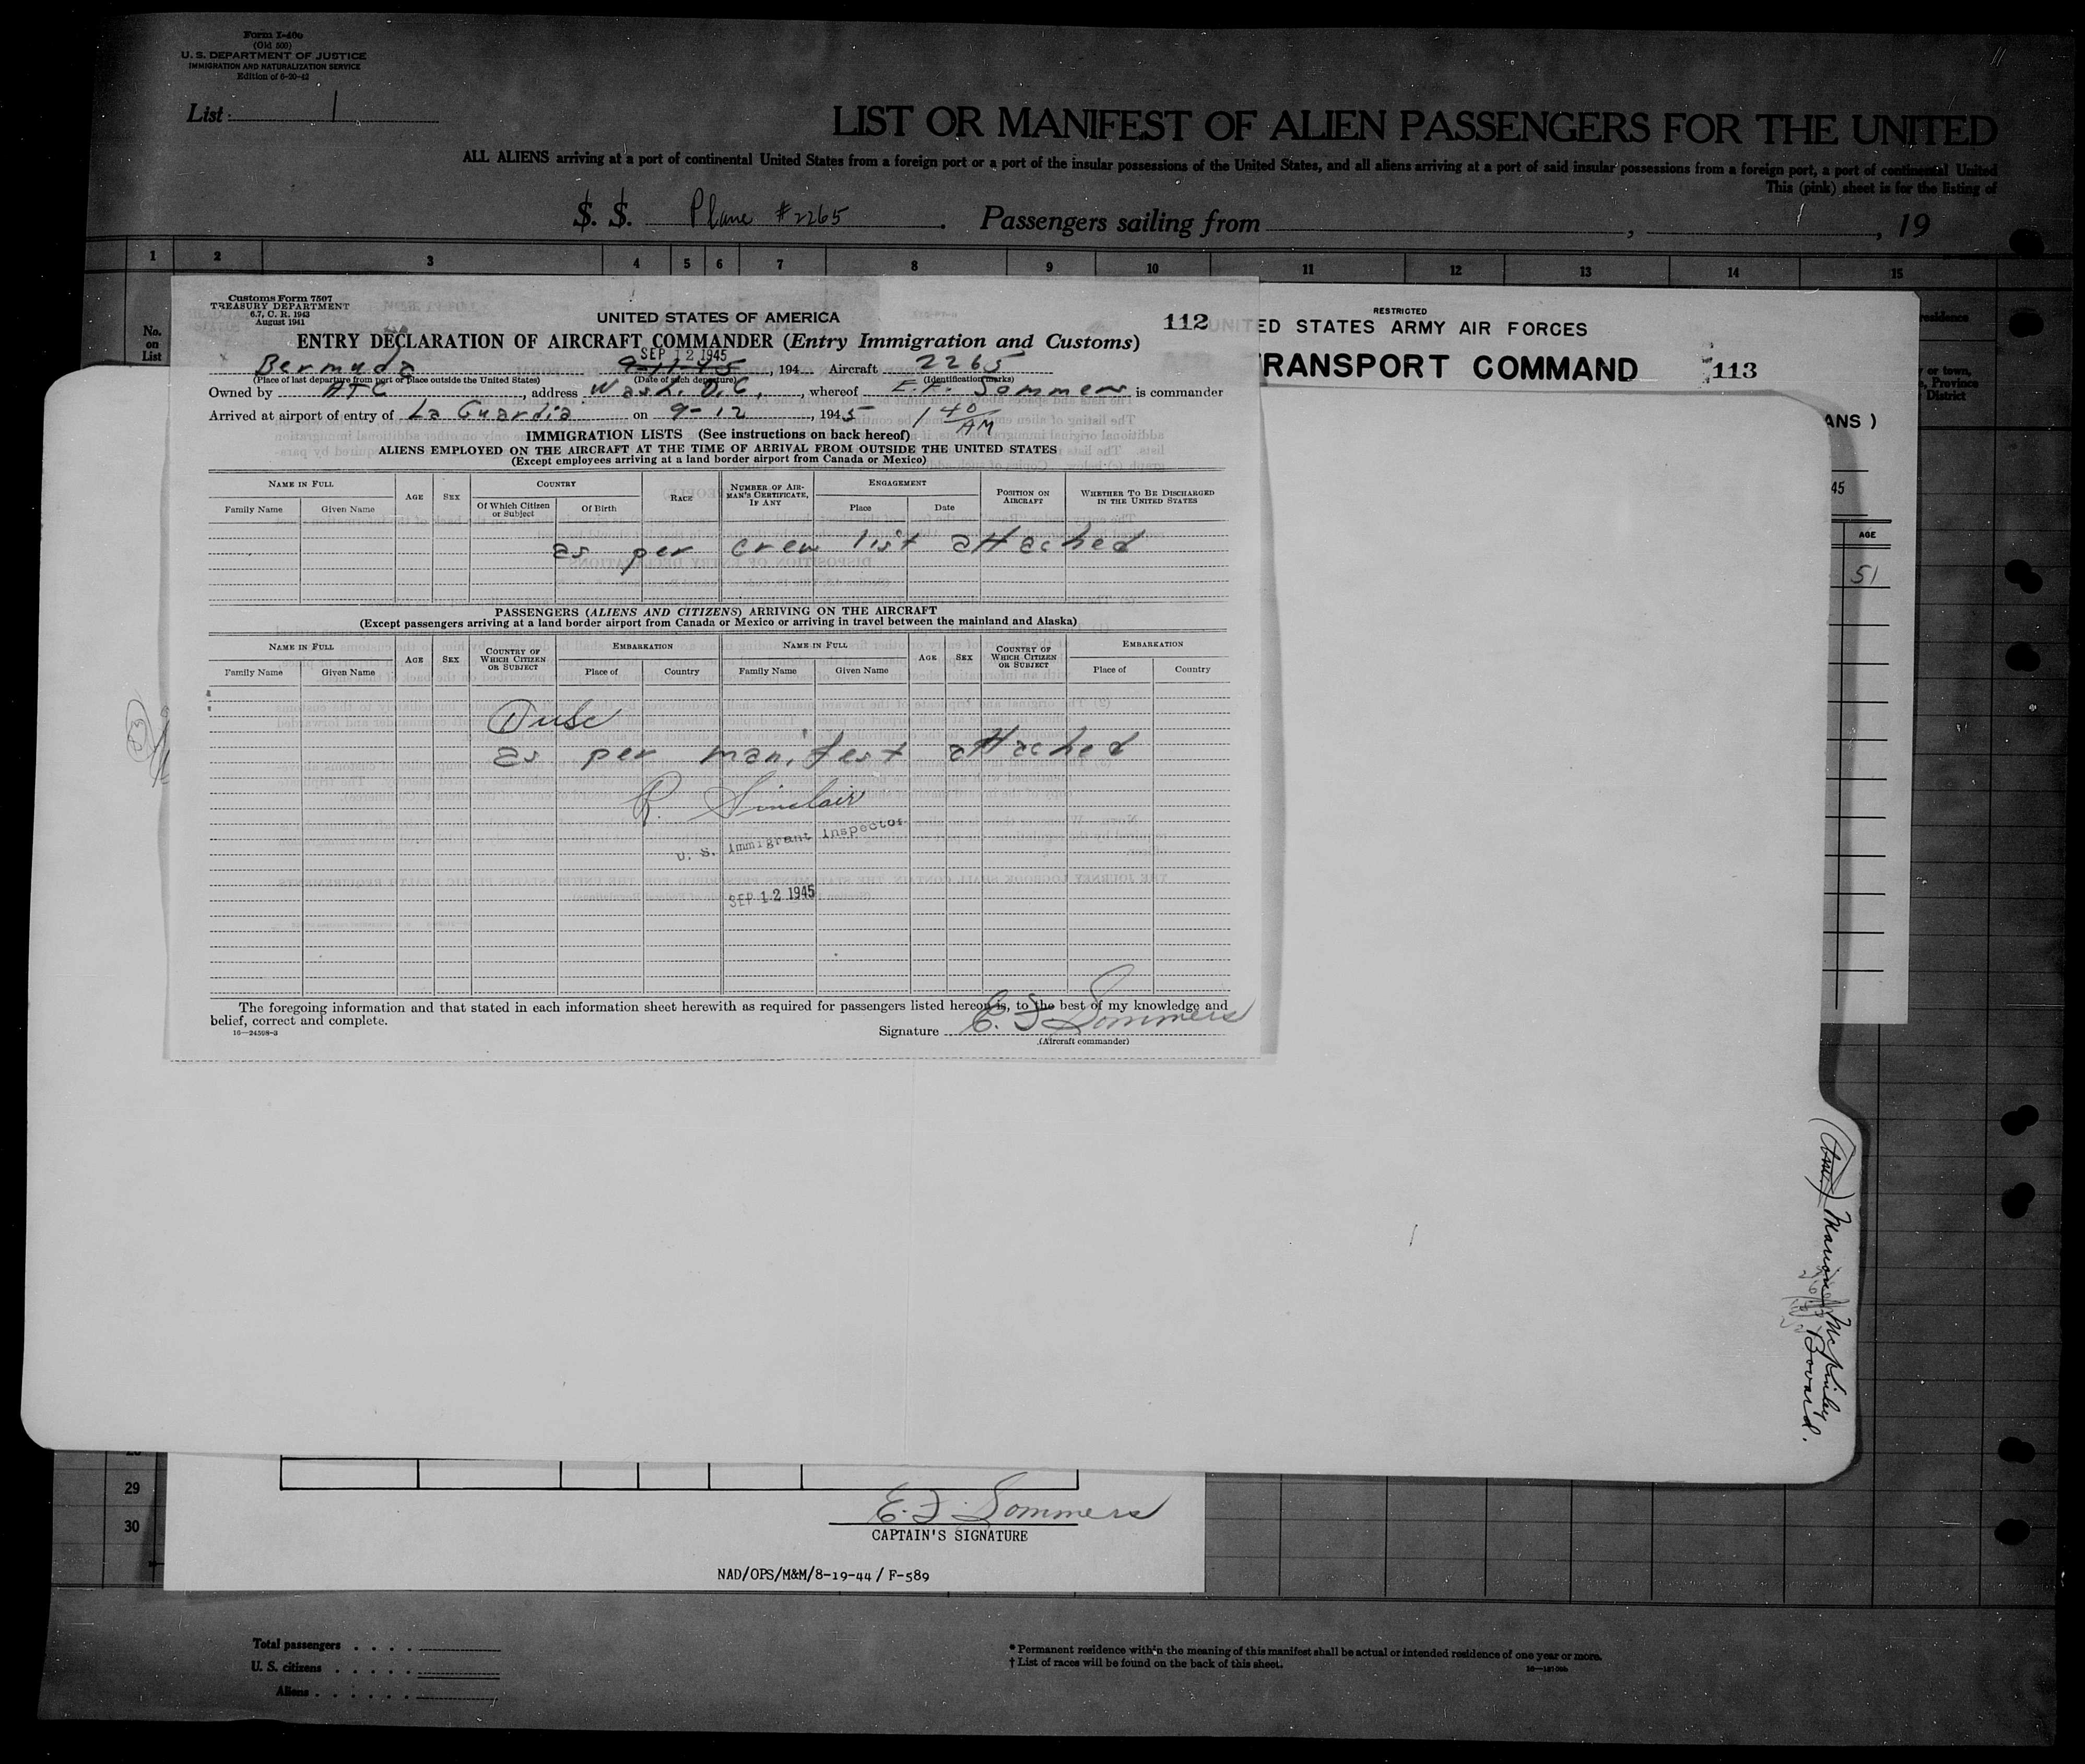 Form I-466
(Old 500)
U. S. DEPARTMENT OF JUSTICE
IMMIGRATION AND NATURALIZATION SERVICE
Edition of 6-20-42
List 1
11
LIST OR MANIFEST OF ALIEN PASSENGERS FOR THE UNITED
ALL ALIENS arriving at a port of continental United States from a foreign port or a port of the insular possessions of the United States, and all aliens arriving at a port of said insular possessions from a foreign port, a port of continental United
This (pink) sheet is for the listing of
S. S. Plane #2265. Passengers sailing from , , 19
1 2 3 4 5 6 7 8 9 10 11 12 13 14 15
No. on List
residence
or town, Province District
Customs Form 7507
TREASURY DEPARTMENT
6.7, C. R. 1943
August 1941
UNITED STATES OF AMERICA
112
ENTRY DECLARATION OF AIRCRAFT COMMANDER (Entry Immigration and Customs)
SEP 12 1945
Bermuda 9-11-45, 194 Aircraft 2265
(Place of last departure from port or place outside the United States) (Date of such departure) (Identification marks)
Owned by ATC, address Wash. D.C., whereof E.F. Sommers is commander
Arrived at airport of entry of La Guardia on 9-12, 1945 1 40/AM
IMMIGRATION LISTS (See instructions on back hereof)
ALIENS EMPLOYED ON THE AIRCRAFT AT THE TIME OF ARRIVAL FROM OUTSIDE THE UNITED STATES
(Except employees arriving at a land border airport from Canada or Mexico)
NAME IN FULL AGE SEX COUNTRY RACE NUMBER OF AIRMAN'S CERTIFICATE, IF ANY ENGAGEMENT POSITION ON AIRCRAFT WHETHER TO BE DISCHARGED IN THE UNITED STATES
Family Name Given Name Of Which Citizen or Subject Of Birth Place Date
as per crew list attached
PASSENGERS (ALIENS AND CITIZENS) ARRIVING ON THE AIRCRAFT
(Except passengers arriving at a land border airport from Canada or Mexico or arriving in travel between the mainland and Alaska)
NAME IN FULL AGE SEX COUNTRY OF WHICH CITIZEN OR SUBJECT EMBARKATION NAME IN FULL AGE SEX COUNTRY OF WHICH CITIZEN OR SUBJECT EMBARKATION
Family Name Given Name Place of Country Family Name Given Name Place of Country
as per manifest attached
R. Sinclair
U. S. Immigrant Inspector
SEP 12 1945
The foregoing information and that stated in each information sheet herewith as required for passengers listed hereon is, to the best of my knowledge and
belief, correct and complete.
16—24598-3
Signature E. F. Sommers
(Aircraft commander)
RESTRICTED
UNITED STATES ARMY AIR FORCES
TRANSPORT COMMAND
113
ANS )
45
AGE
51
Marion McKinley
Bovard.
29
30
E. F. Sommers
CAPTAIN'S SIGNATURE
NAD/OPS/M&M/8-19-44 / F-589
Total passengers . . . .
U. S. citizens . . . . .
Aliens . . . . . .
* Permanent residence within the meaning of this manifest shall be actual or intended residence of one year or more.
† List of races will be found on the back of this sheet.